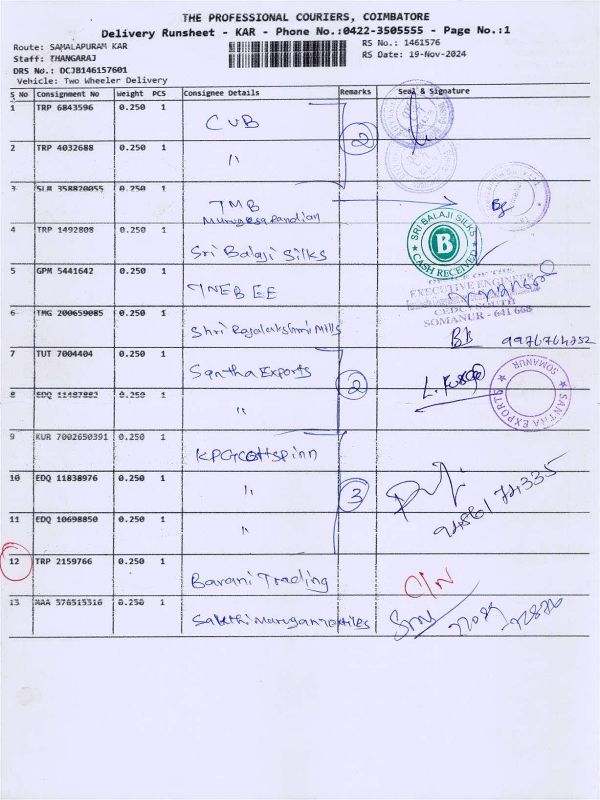 THE PROFESSIONAL COURIERS, COIMBATORE
Delivery Runsheet - KAR - Phone No.:0422-3505555 - Page No.:1
Route: SAMALAPURAM KAR
RS No.: 1461576
Staff: THANGARAJ
RS Date: 19-Nov-2024
DRS No.: DCJB146157601
Vehicle: Two Wheeler Delivery
S No Consignment No Weight PCS Consignee Details Remarks Seal & Signature
1 TRP 6843596 0.250 1 CUB
2
2 TRP 4032688 0.250 1 "
3 SLM 358820055 0.250 1 TMB
Murugesapandian
4 TRP 1492808 0.250 1 Sri Balaji Silks
SRI BALAJI SILKS
B
CASH RECEIVED
5 GPM 5441642 0.250 1 TNEB EE
OFFICE OF THE
EXECUTIVE ENGINEER
SOUTH
SOMANUR - 641 668
6 TMG 200659085 0.250 1 Shri Rajalakshmi Mills
9976764252
7 TUT 7004404 0.250 1 Santha Exports
2
SOMANUR
SANTHA EXPORTS
8 EDQ 11487882 0.250 1 "
9 KUR 7002650391 0.250 1 KPG Cottspinn
10 EDQ 11838976 0.250 1 "
3
9486174335
11 EDQ 10698850 0.250 1 "
12 TRP 2159766 0.250 1 Barani Trading
C/N
13 MAA 576515316 0.250 1 Sakthi Murugan Textiles